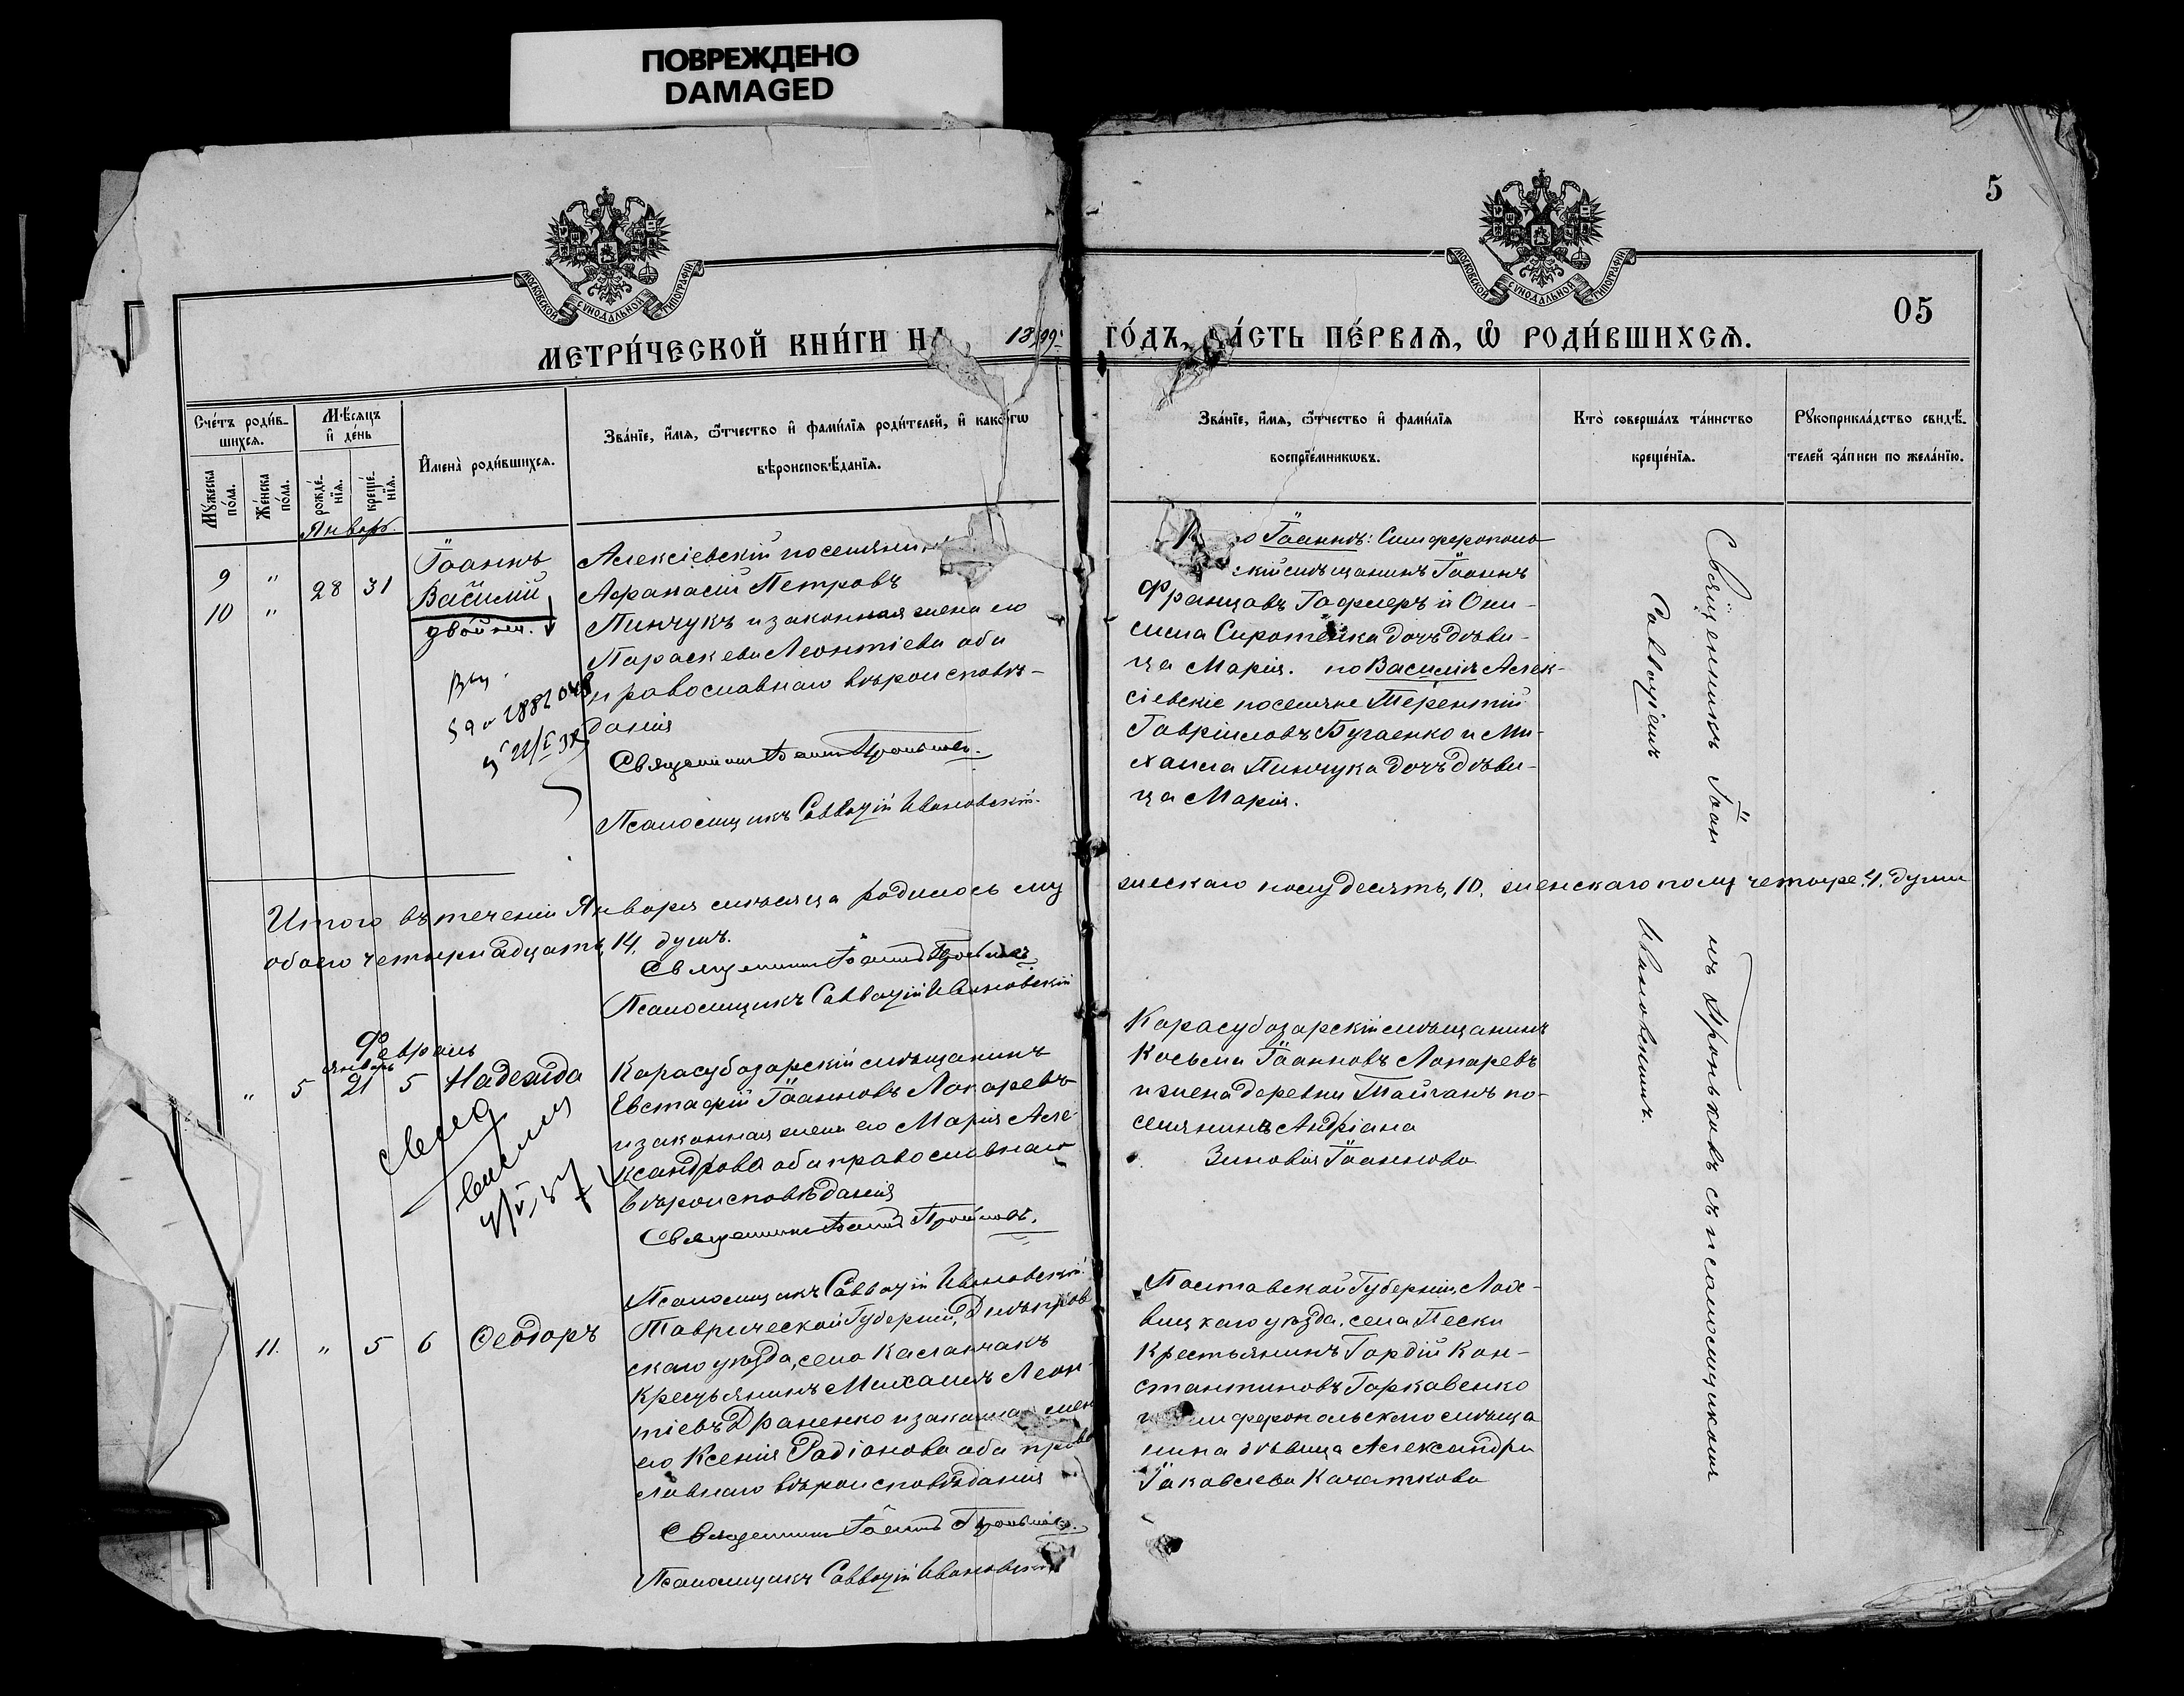 ПОВРЕЖДЕНО
DAMAGED
5
05
МОСКОВСКОЙ СѴНОДАЛЬНОЙ ТИПОГРАФІИ
МОСКОВСКОЙ СѴНОДАЛЬНОЙ ТИПОГРАФІИ
МЕТРИ́ЧЕСКОЙ КНИ́ГИ НА 1899 ГО́ДЪ, ЧА́СТЬ ПЕ́РВАѦ, Ѡ РОДИ́ВШИХСѦ.
Сче́тъ роди́в-
шихсѧ.
Мѣсѧцъ
и де́нь
Мꙋжеска по́ла.
Же́нска по́ла.
рожде́-
нїѧ.
креще́-
нїѧ.
Имена̀ роди́вшихсѧ.
Зва́нїе, и҆́мѧ, ѻ҆́тчество и҆ фами́лїѧ роди́телей, и҆ како́гѡ
вѣроисповѣ́данїѧ.
Зва́нїе, и҆́мѧ, ѻ҆́тчество и҆ фами́лїѧ
воспрїе́мникѡвъ.
Кто̀ соверша́лъ та́инство
креще́нїѧ.
Рꙋкоприкла́дство свидѣ́-
телей за́писи по жела́нїю.
Январь.
9 " 28 31
10 "
Іоаннъ
Василій
двойня.
Алексіевскій поселянинъ
Афанасій Петровъ
Пинчукъ и законная жена его
Параскева Леонтіева оба
православнаго вѣроисповѣ-
данія
Священникъ Іоаннъ
Псаломщикъ Савватій Ивановскій.
Іоаннъ: Симферополь-
скій мѣщанинъ Іоаннъ
Францовъ и
Сиротенка дочь дѣви-
ца Марія. по Василіи Алек-
сіевскіе поселяне Терентій
Гавріиловъ Бугаенко и Ми-
хаила Пинчука дочь дѣви-
ца Марія.
Священникъ Іоаннъ съ псаломщикомъ
Савватіемъ Ивановскимъ.
Итого въ теченіи Января мѣсяца родилось му
жескаго полу десять, 10, женскаго полу четыре, 4, души
обоего четырнадцать, 14, душъ.
Священникъ Іоаннъ
Псаломщикъ Савватій Ивановскій
Февраль
Январь
" 5 21 5 Надежда
Карасубазарскій мѣщанинъ
Евстафій Іоанновъ Лопаревъ
и законная жена его Марія Але-
ксандрова оба православнаго
вѣроисповѣданія
Священникъ Іоаннъ
Псаломщикъ Савватій Ивановскій.
Карасубазарскій мѣщанинъ
Косьма Іоанновъ Лопаревъ
и жена деревни Тайганъ по-
селянина Андріана
Зиновія Іоаннова
11. " 5 6 Ѳеодоръ
Таврической Губерніи, Днѣпров
скаго уѣзда, села Каланчакъ
Крестьянинъ Михаилъ Леон-
тіевъ Драненко и законная жен
его Ксенія Радіонова оба право
славнаго вѣроисповѣданія
Священникъ Іоаннъ
Псаломщикъ Савватій Ивановскій
Полтавской Губерніи, Лох-
вицкаго уѣзда, села Пески
Крестьянинъ Гордій Кон-
стантиновъ Горкавенко
и Симферопольскаго мѣща
нина дѣвица Александра
Іаковлева